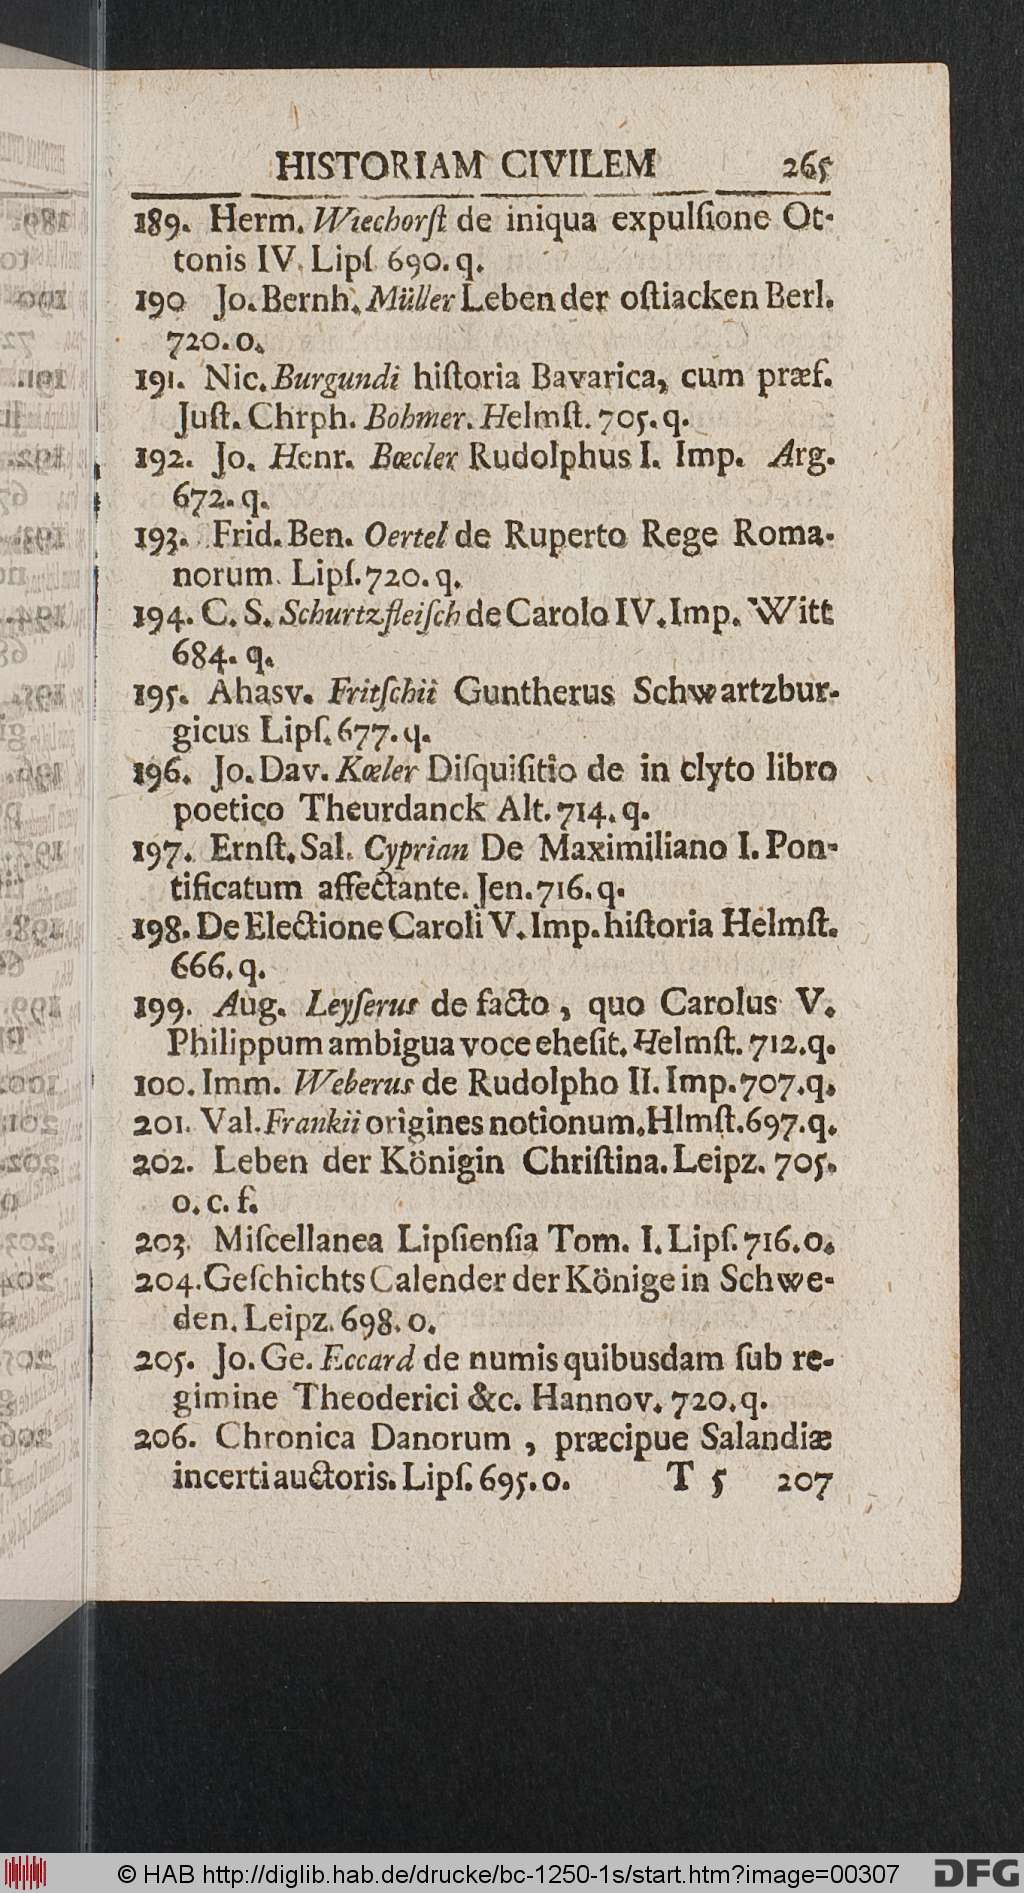 HISTORIAM CIVILEM 265
189. Herm. Wiechorſt de iniqua expulſione Ot-
tonis IV. Lipſ 690. q.
190 Jo. Bernh. Müller Leben der oſtiacken Berl.
720. o.
191. Nic. Burgundi hiſtoria Bavarica, cum præf.
Juſt. Chrph. Bohmer. Helmſt. 705. q.
192. Jo. Henr. Bœcler Rudolphus I. Imp. Arg.
672. q.
193. Frid. Ben. Oertel de Ruperto Rege Roma-
norum. Lipſ. 720. q.
194. C. S. Schurtzfleiſch de Carolo IV. Imp. Witt
684. q.
195. Ahasv. Fritſchii Guntherus Schwartzbur-
gicus Lipſ. 677. q.
196. Jo. Dav. Kœler Diſquiſitio de in clyto libro
poetico Theurdanck Alt. 714. q.
197. Ernſt. Sal. Cyprian De Maximiliano I. Pon-
tificatum affectante. Jen. 716. q.
198. De Electione Caroli V. Imp. hiſtoria Helmſt.
666. q.
199. Aug. Leyſerus de facto, quo Carolus V.
Philippum ambigua voce eheſit. Helmſt. 712. q.
100. Imm. Weberus de Rudolpho II. Imp. 707. q.
201. Val. Frankii origines notionum. Hlmſt. 697. q.
202. Leben der Königin Chriſtina. Leipz. 705.
o. c. f.
203. Miſcellanea Lipſienſia Tom. I. Lipſ. 716. o.
204. Geſchichts Calender der Könige in Schwe-
den. Leipz. 698. o.
205. Jo. Ge. Eccard de numis quibusdam ſub re-
gimine Theoderici &c. Hannov. 720. q.
206. Chronica Danorum, præcipue Salandiæ
incerti auctoris. Lipſ. 695. o. T 5 207
© HAB http://diglib.hab.de/drucke/bc-1250-1s/start.htm?image=00307 DFG